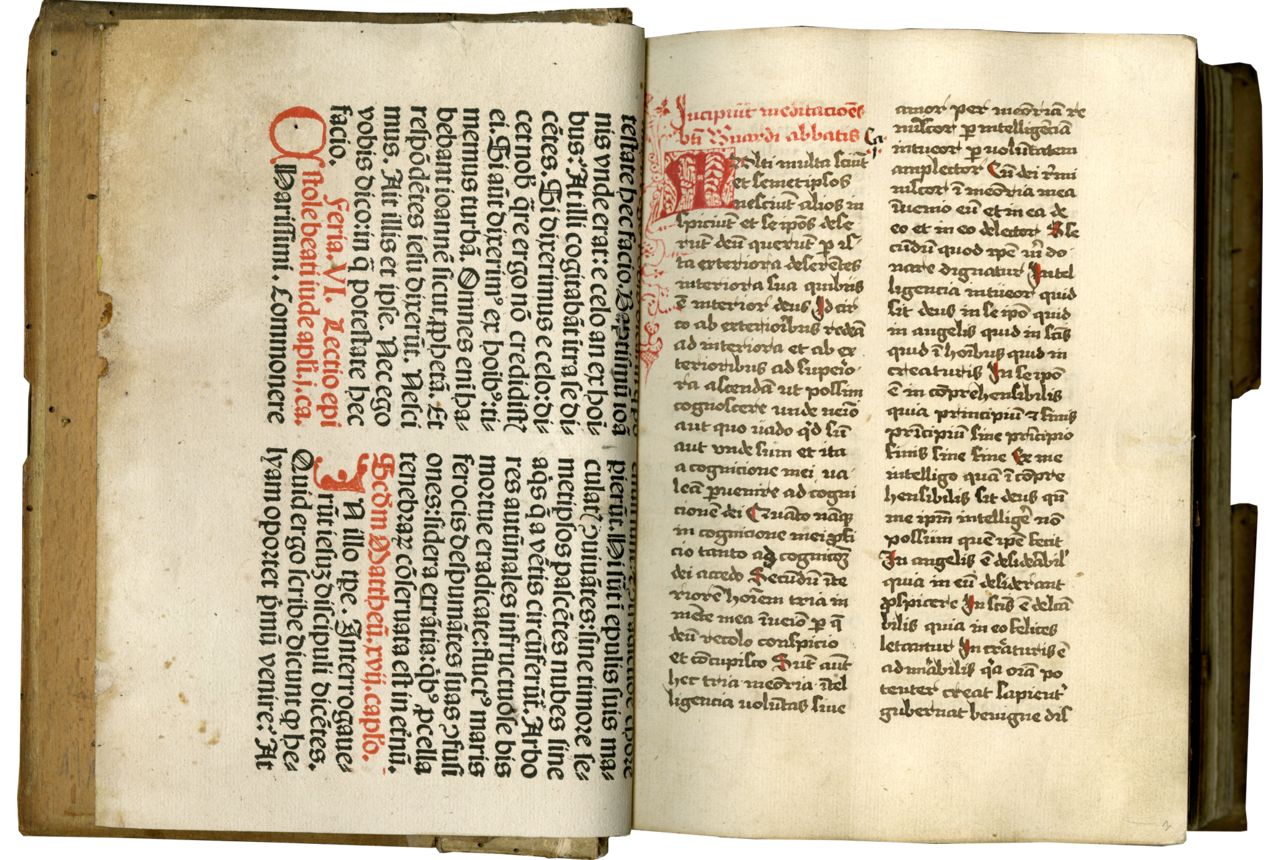 testate hec facio. Baptismū ioā
nis vnde erat: e celo an ex hoi-
bus: At illi cogitabāt intra se di-
cētes. Si dixerimus e celo: di-
cet nob̄ q̄re ergo nō credidist̄
ei. Si aūt dixerimꝰ ex hoibꝰ: ti-
memus turbā. Omnes eni ha-
bebāt ioannē sicut ꝓphetā. Et
respōdētes iesu dixerūt. Nesci
mus. Ait illis et ipse. Nec ego
vobis dico: in q̄ potestate hec
facio.
Feria. VI. Lectio epi
stole beati iude apłi. j. ca.
CHarissimi. Commonere
pierūt. Hi sūt i epulis suis ma-
culat̄ ꝯuiuātes: sine timore se-
metipsos pascētes nubes sine
aq̄s q̄ a vētis circūferūt. Arbo
res autūnales infructuose bis
mortue eradicate: fluctꝰ maris
ferocis despumātes suas ꝯfusi
ones: sidera errātia: qbꝰ ꝓcella
tenebraꝝ cōseruata est in et'nū.
Scd'm Mattheū. xvij. capło.
IN illo tpe. Interrogaue-
rūt iesuꝫ discipuli dicētes.
Quid ergo scribe dicunt qꝫ he-
lyam oportet p̄mū venire: At
Incipiūt meditacōēs
bt̄i Bn̄ardi abbatis Ca
Mvlti multa sciūt
et semetipsos
nesciūt alios in
spiciūt et se ip̄os dese
rūt deū querūt p̲ is
ta exteriora deserētes
interiora sua quibus
ē interior deus Id cir
co ab exterioribus redeā
ad interiora et ab ex
terioribus ad superio
ra ascendā ut possim
cognoscere unde uenio
aut quo uado q̇d sū
aut vnde sum et ita
a cognicione mei ua
leā p̲uenire ad cogni
cionē dei Quāto nāqꝫ
in cognicione mei ꝓfi
cio tanto ad cognicōꝫ
dei accedo Secūdū īte
riorē hoīem tria in
mēte mea īuēio p̲ q̄
deū recolo conspicio
et cōcupisco Sūt aūt
hec tria meōria ītel
ligencia uolūtas siue
amor per meōriā re
nilcor p̲ intelligēciā
intueor p̲ uolūtatem
amplector Cū dei rīni
nilcor ī meōria mea
īuenio eū et in ea de
eo et in eo delector Se
cūdū quod ip̄e m̄ do
nare dignatur Intel
ligencia intueor quid
sit deus in se ip̄o quid
in angelis quid in sc̄is
quid ī hoībus quid in
creaturis In se ip̄o
ē incōprehensibilis
quia principiū ⁊ finis
prīcipiū sine prīcipio
finis sine fine Ex me
intelligo quā īcōpre
hensibilis sit deus qm̄
me ip̄m intelligē nō
possum quē ip̄e fecit
In angelis ē desiderabil'
quia in eū desiderant
ꝓspicere In sc̄is ē delcā
bilis quia in eo felices
letantur In crāturis ē
admīabilis q̇a oīa po
tenter creat sapient'
gubernat benigne dis